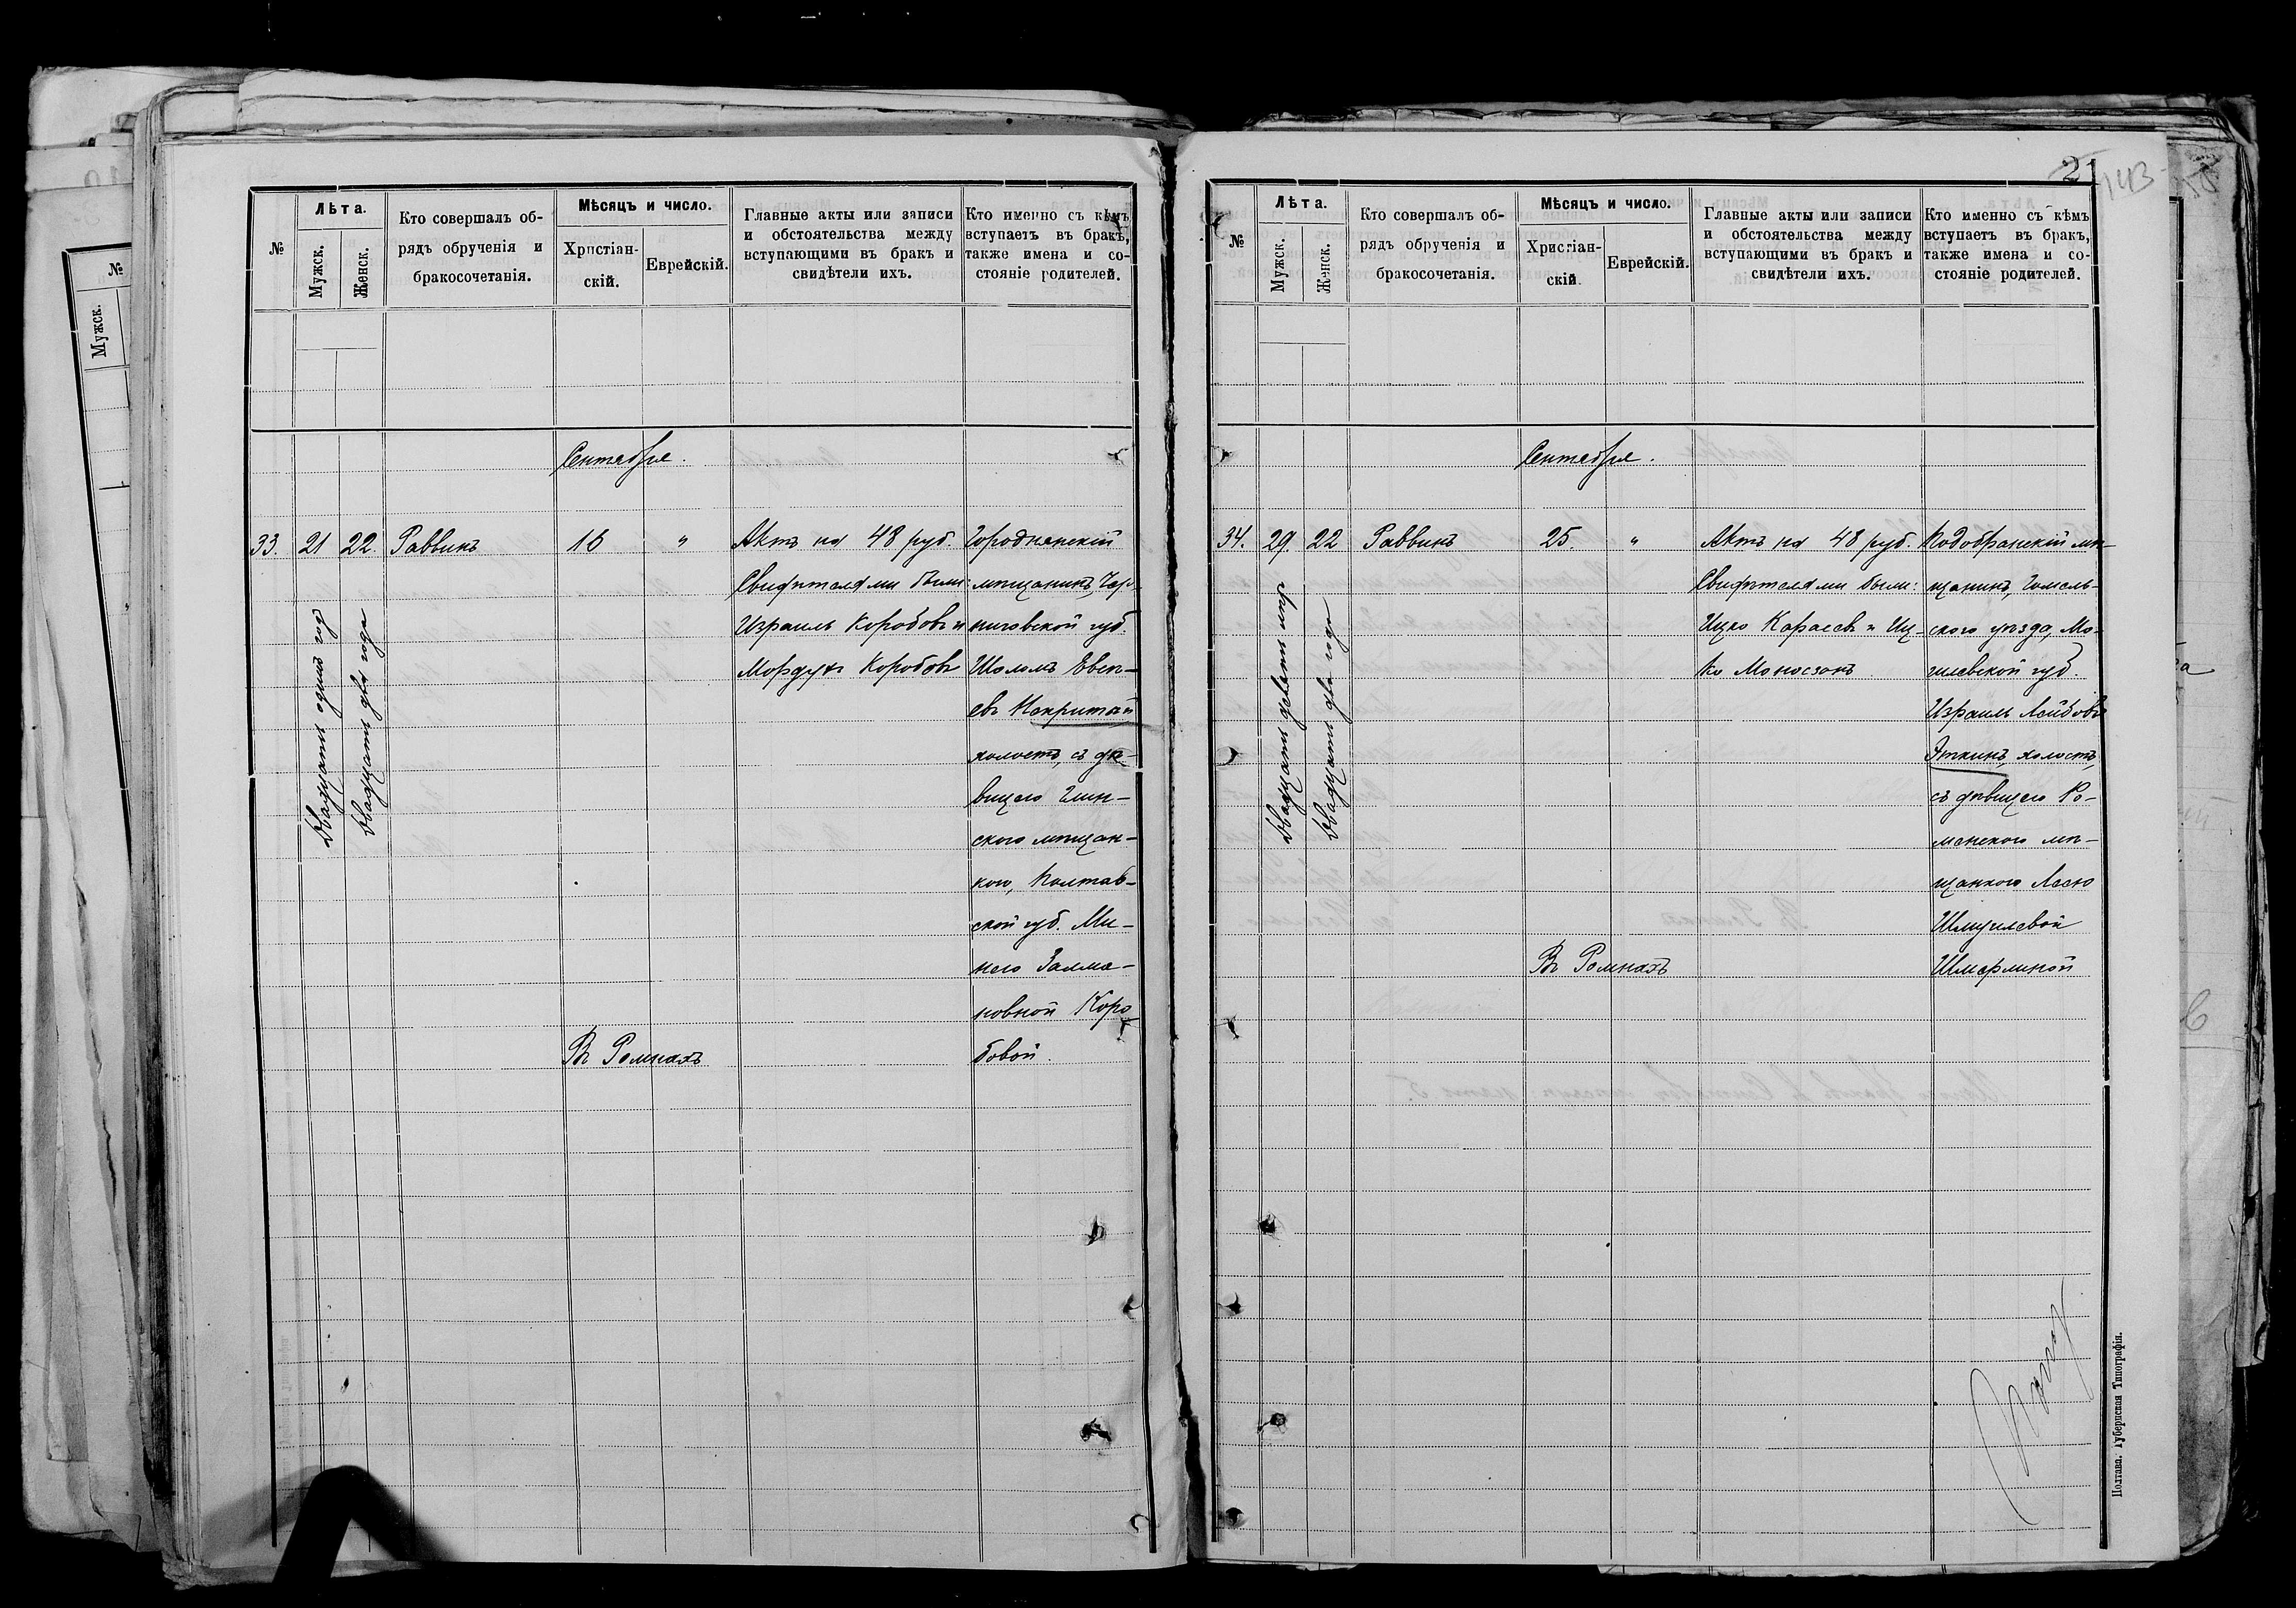 №
Лѣта.
Мужск.
Женск.
Кто совершалъ об-
рядъ обрученія и
бракосочетанія.
Мѣсяцъ и число.
Христіан-
скій.
Еврейскій.
Главные акты или записи
и обстоятельства между
вступающими въ бракъ и
свидѣтели ихъ.
Кто именно съ кѣмъ
вступаетъ въ бракъ,
также имена и со-
стояніе родителей.
Сентября.
33. 21 22. Раввинъ
двадцать одинъ годъ
двадцать два года
"
Актъ на 48 руб.
Свидѣтелями были:
Израиль Коробовъ и
Мордухъ Коробовъ
Городнянскій
мѣщанинъ, Чер-
ниговской губ.
Шоломъ
холостъ, съ дѣ-
вицею Глин-
ского мѣщан-
кою, Полтав-
ской губ. Ми-
нею Залма-
новной Коро-
бовой.
Въ Ромнахъ
21
143
№
Лѣта.
Мужск.
Женск.
Кто совершалъ об-
рядъ обрученія и
бракосочетанія.
Мѣсяцъ и число.
Христіан-
скій.
Еврейскій.
Главные акты или записи
и обстоятельства между
вступающими въ бракъ и
свидѣтели ихъ.
Кто именно съ кѣмъ
вступаетъ въ бракъ,
также имена и со-
стояніе родителей.
Сентября.
34. 29. 22 Раввинъ
двадцать девять
двадцать два года
25.
"
Актъ на 48 руб.
Свидѣтелями были:
Ицко Караевъ и Иц-
ко Моносзонъ
мѣ-
щанинъ, Гомель-
ского уѣзда, Мо-
гилевской губ.
Израиль Лейбовъ
Эткинъ, холостъ,
съ дѣвицею Ро-
менского мѣ-
щанкою Лею
Шмуилевой
Шмерлиной
Въ Ромнахъ
Полтава. Губернская Типографія.
№
Мужск.